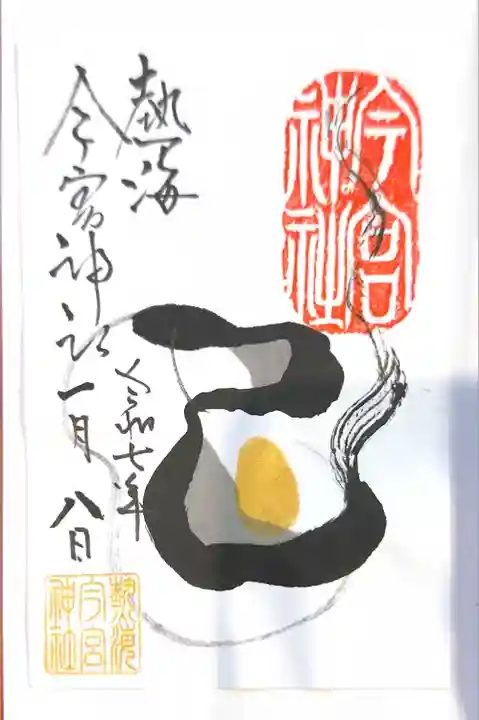 今宮
神社
巳
令和七年
熱海
今宮神社
一月八日
熱海
今宮
神社